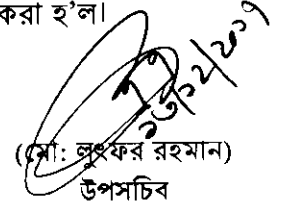 করা হ'ল।
(মো: লুৎফর রহমান)
উপসচিব